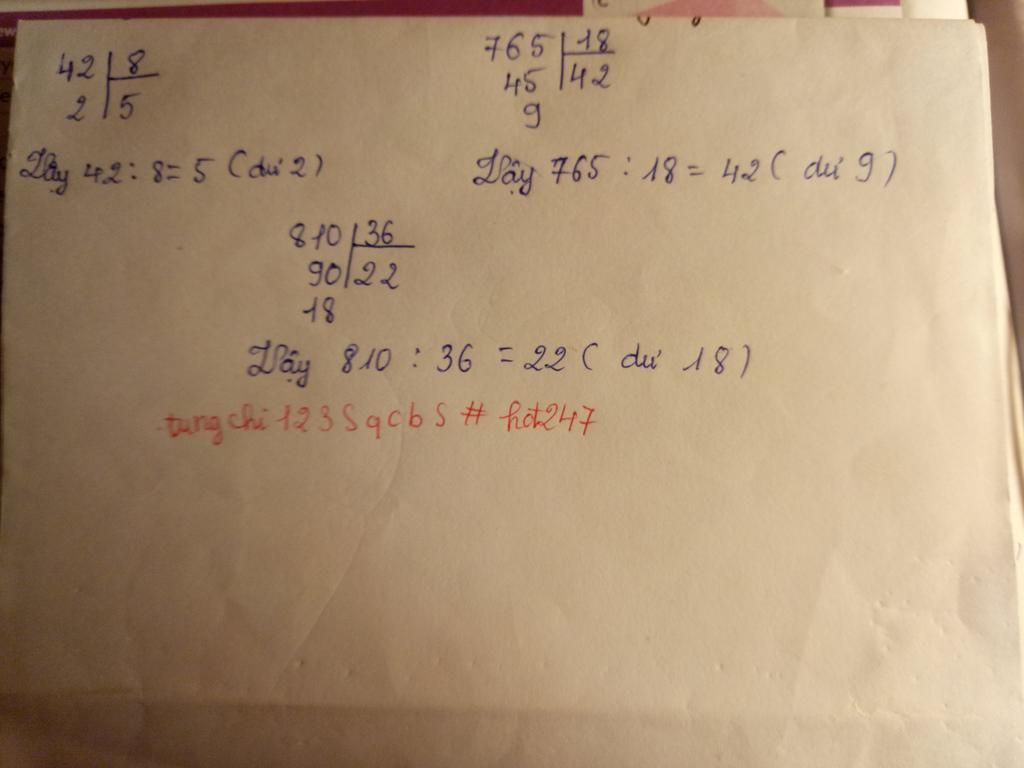 42 8
2 5
Vậy 42 : 8 = 5 ( dư 2 )
765 18
45 42
9
Vậy 765 : 18 = 42 ( dư 9 )
810 36
90 22
18
Vậy 810 : 36 = 22 ( dư 18 )
tungchi 123 S q c b S # hot247